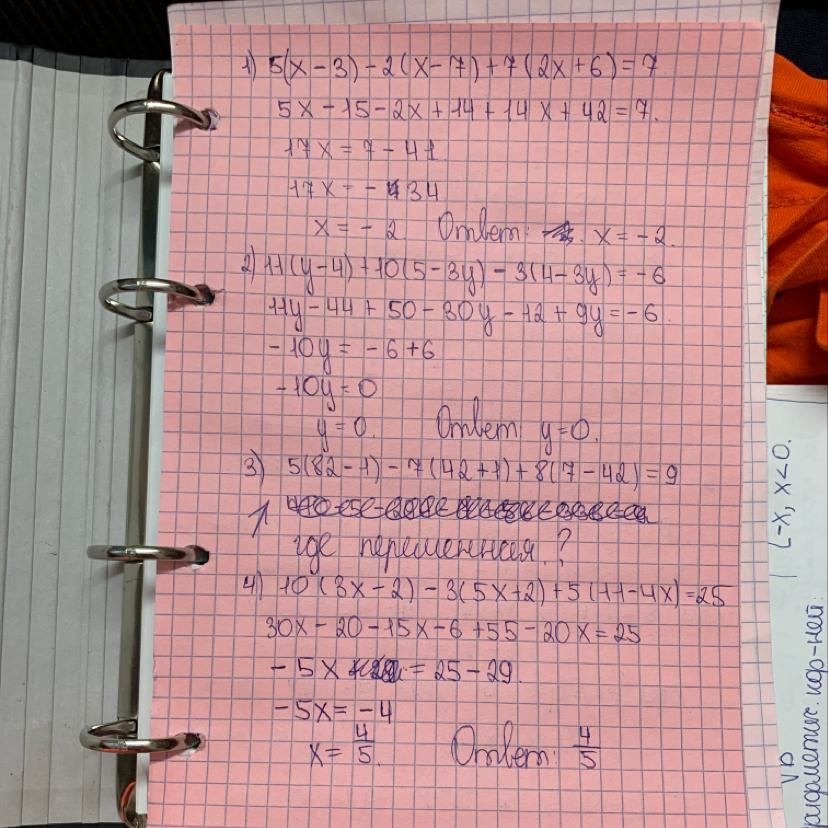 1) 5(x-3)-2(x-7)+7(2x+6)=7
5x-15-2x+14+14x+42=7.
17x=7-41
17x=-34
x=-2 Ответ: x=-2.
2) 11(y-4)+10(5-3y)-3(4-3y)=-6
11y-44+50-30y-12+9y=-6.
-10y=-6+6
-10y=0
y=0. Ответ: y=0.
3) 5(82-1)-7(42+1)+8(7-42)=9
где переменная?
4) 10(3x-2)-3(5x+2)+5(11-4x)=25
30x-20-15x-6+55-20x=25
-5x=25-29.
-5x=-4
x=4/5. Ответ: 4/5
-x, x<0.